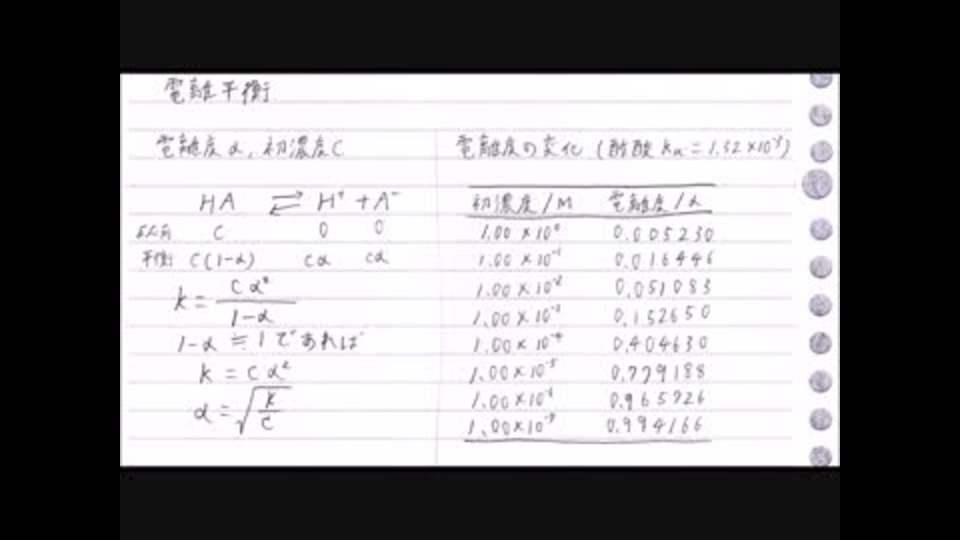 電離平衡
電離度α, 初濃度C
HA ⇄ H⁺ + A⁻
反応前 C 0 0
平衡 C(1-α) Cα Cα
k = Cα²/(1-α)
1-α ≒ 1であれば
k = Cα²
α = √(k/C)
電離度の変化 (酢酸
初濃度/M 電離度/α
1.00×10⁰ 0.005230
1.00×10⁻¹ 0.016446
1.00×10⁻² 0.051083
1.00×10⁻³ 0.152650
1.00×10⁻⁴ 0.404630
1.00×10⁻⁵ 0.779188
1.00×10⁻⁶ 0.965726
1.00×10⁻⁷ 0.994166